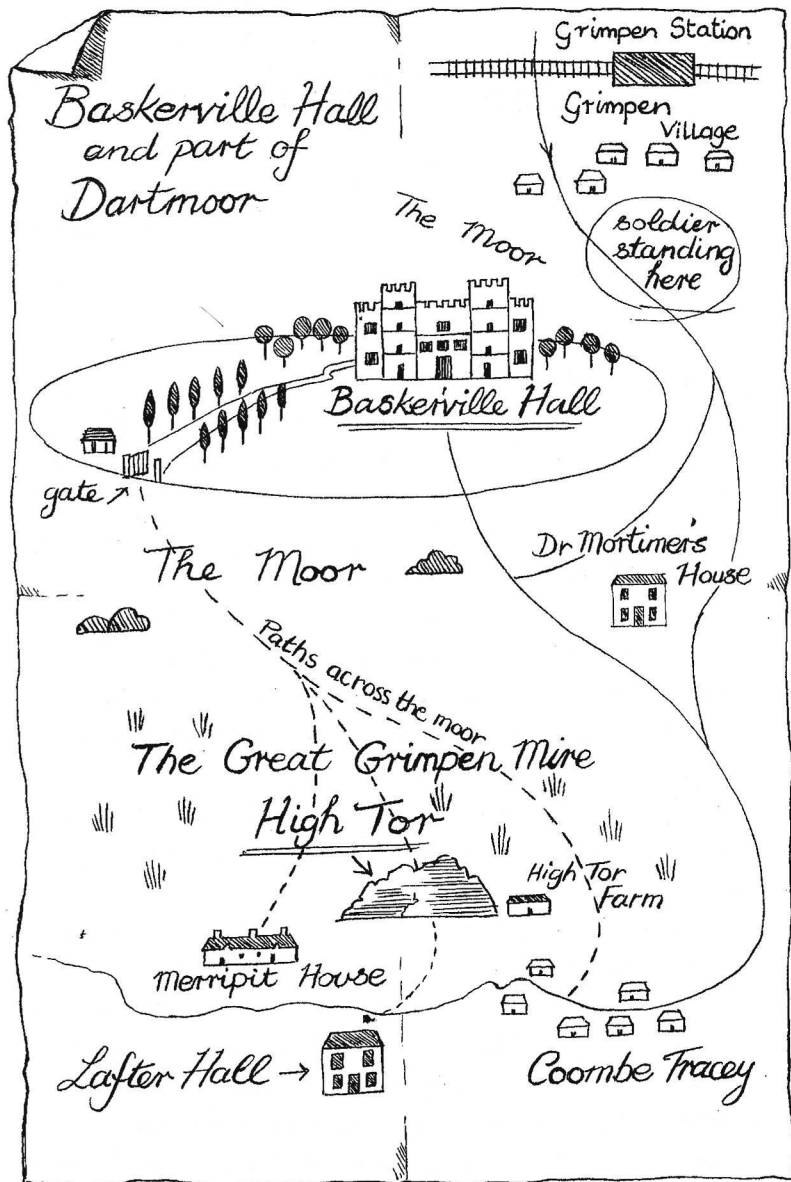 Grimpen Station
Baskerville Hall
and part of
Dartmoor
Grimpen
Village
The Moor
soldier
standing
here
Baskerville Hall
gate
Dr Mortimer's
House
The Moor
Paths across the moor
The Great Grimpen Mire
High Tor
High Tor
Farm
Merripit House
Lafter Hall
Coombe Tracey